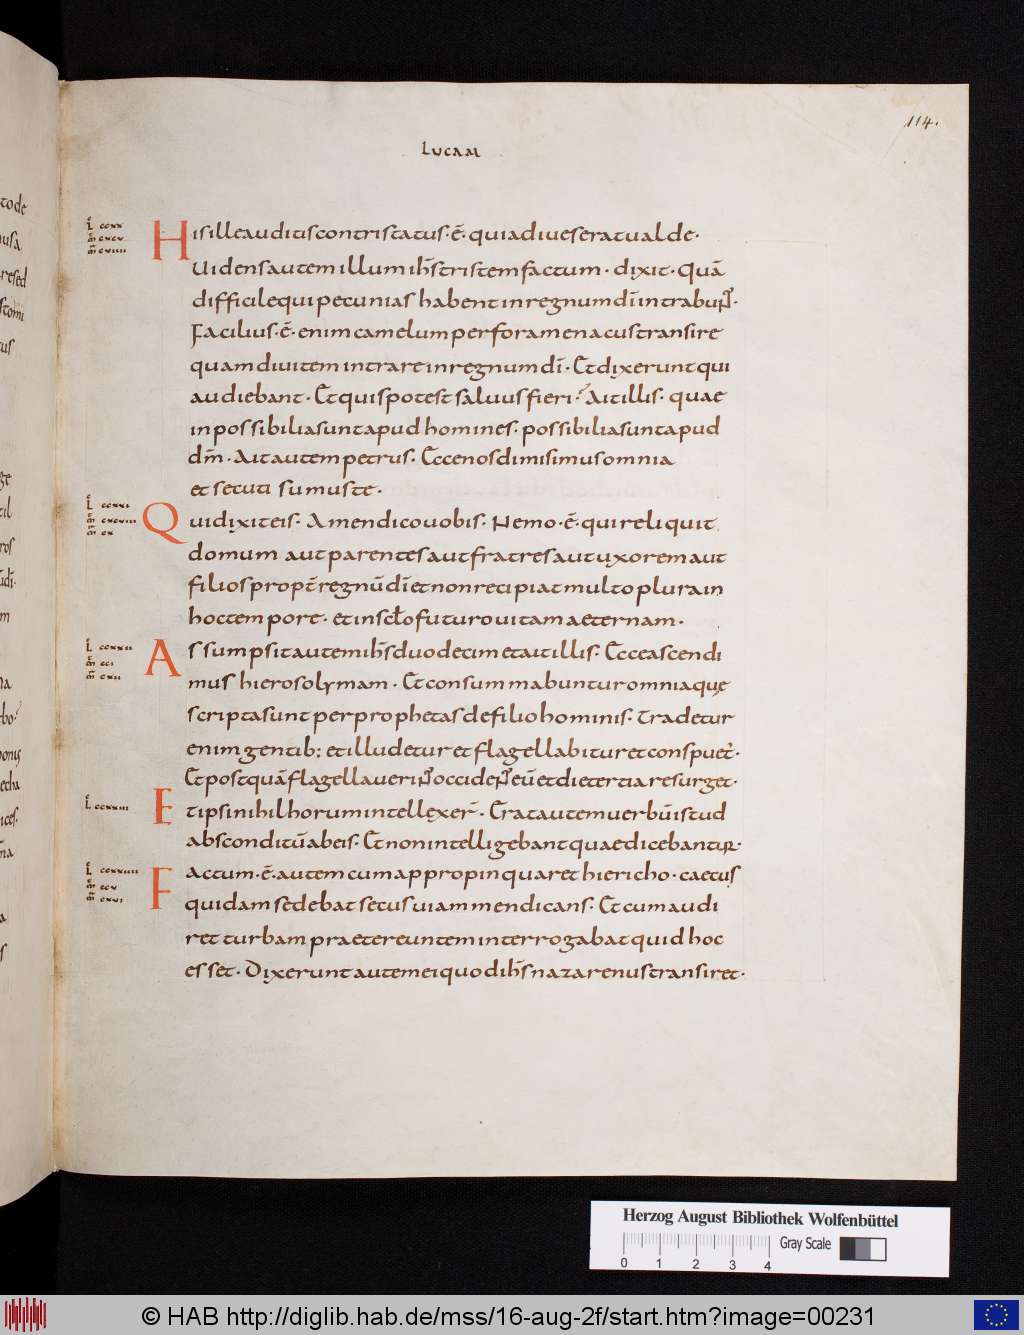 114.
LUCAM
L CCXX
CXCV
CVIIII
His ille auditis contristatus · ē · quia diues erat ualde ·
Uidens autem illum ih̄s tristem factum · dixit · Quā
difficile qui pecunias habent in regnum dī intrabuɴ̄ ·
Facilius · ē · enim camelum per foramen acus transire
quam diuitem intrare in regnum dī · Et dixerunt qui
audiebant · Et quis potest saluus fieri? Ait illis · quae
inpossibilia sunt apud homines · possibilia sunt apud
dm̄ · Ait autem petrus · Ecce nos dimisimus omnia
et secuti sumus te ·
L CCXXI
CXCVIII
CX
Qui dixit eis · Amen dico uobis · Nemo · ē · qui reliquit
domum aut parentes aut fratres aut uxorem aut
filios propt̄ regnū dī et non recipiat multo plura in
hoc tempore · et in sc̄lo futuro uitam aeternam ·
L CCXXII
CCI
CXII
Assumpsit autem ih̄s duodecim et ait illis · Ecce ascendi
mus hierosolymam · Et consummabuntur omnia quę
scripta sunt per prophetas de filio hominis · Tradetur
enim gentib: et illudetur et flagellabitur et conspuet̄ ·
Et postquā flagellaueriɴ̄ occideɴ̄ eū et die tertia resurget ·
L CCXXIII
Et ipsi nihil horum intellexer̄ · Erat autem uerbū istud
absconditū ab eis · Et non intelligebant quae dicebantur ·
L CCXXIIII
CCV
CXVI
Factum · ē · autem cum appropinquaret hiericho · caecus
quidam sedebat secus uiam mendicans · Et cum audi
ret turbam praetereuntem interrogabat quid hoc
esset · Dixerunt autem ei quod ih̄s nazarenus transiret ·
Herzog August Bibliothek Wolfenbüttel
Gray Scale
0 1 2 3 4
© HAB http://diglib.hab.de/mss/16-aug-2f/start.htm?image=00231